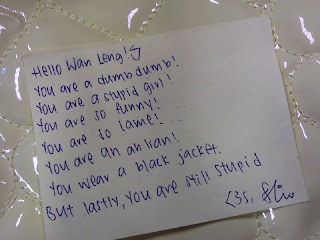 Hello Wan Leng!
You are a dumb dumb!
You are a stupid girl!
You are so funny!
You are so lame! ...
You are an ah lian!
You wear a black jacket.
But lastly, you are still stupid
<3s,